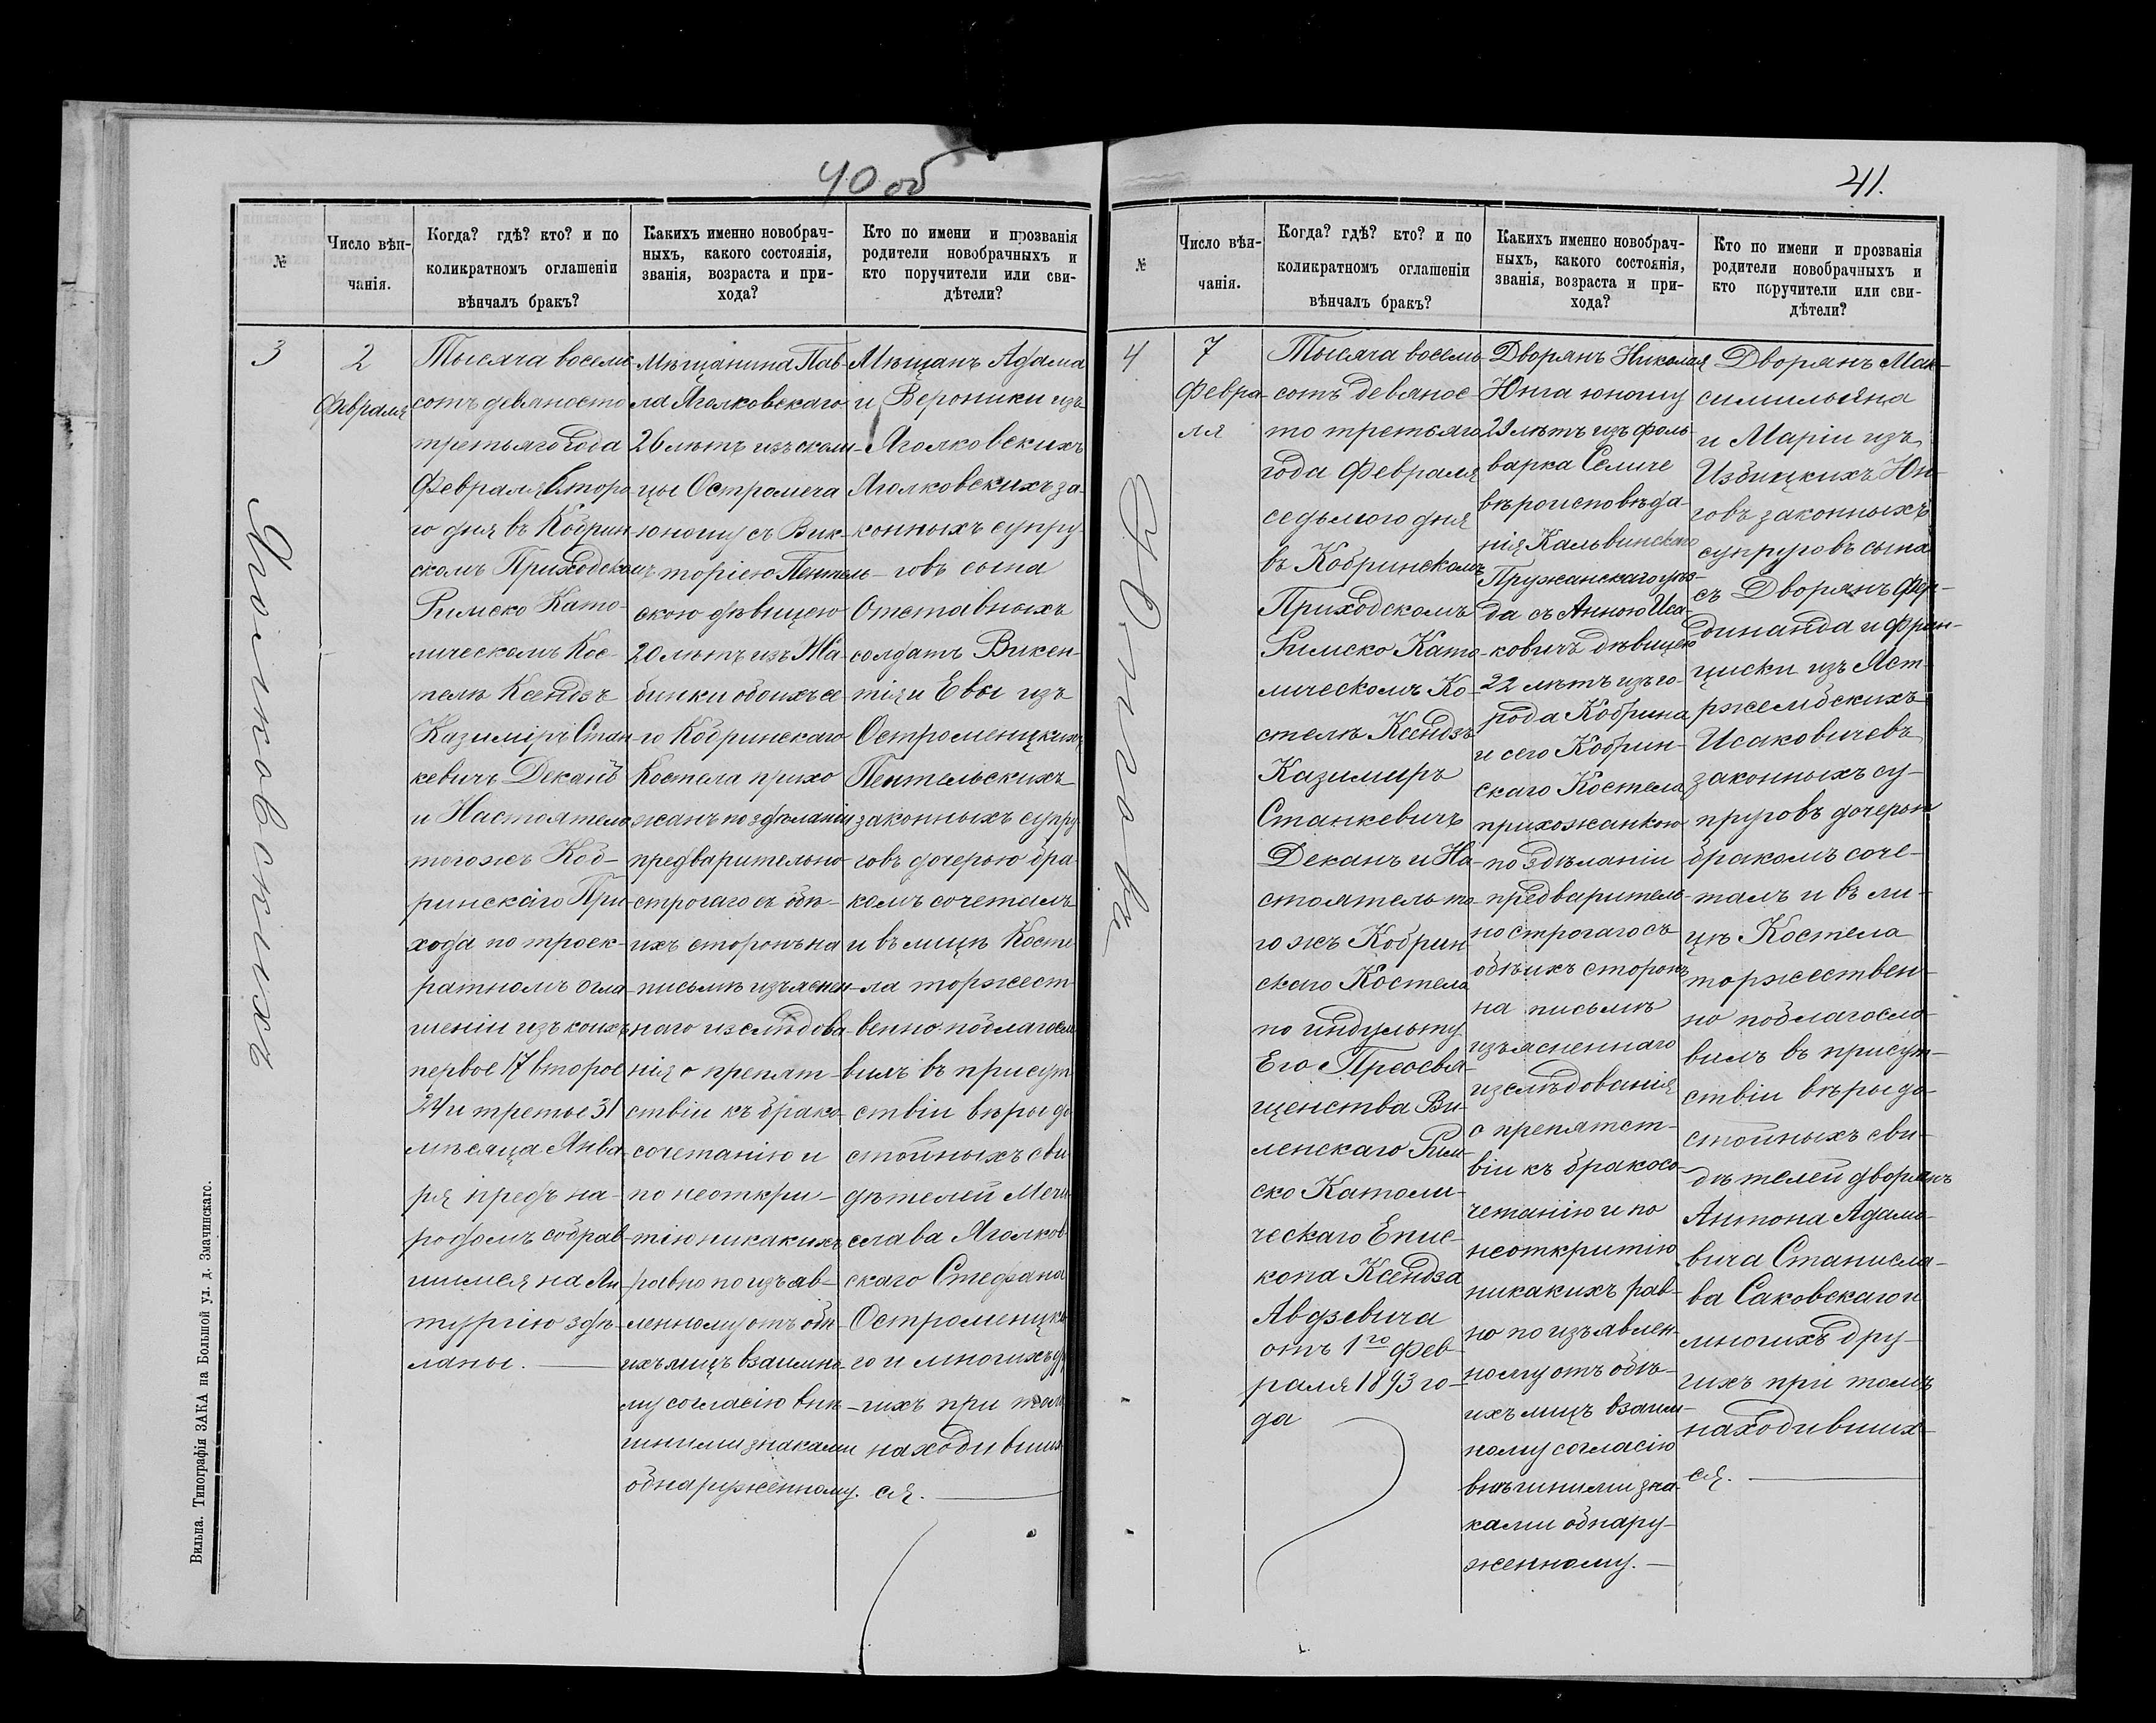 40 об
№
Число вѣн-
чанія.
Когда? гдѣ? кто? и по
коликратномъ оглашеніи
вѣнчалъ бракъ?
Какихъ именно новобрач-
ныхъ, какого состоянія,
званія, возраста и при-
хода?
Кто по имени и прозванія
родители новобрачныхъ и
кто поручители или сви-
дѣтели?
3
2
Февраля
Яголковскихъ
Тысяча восемь
сотъ девяносто
третьяго года
Февраля Второ
го дня въ Кобрин
скомъ Приходскомъ
Римско Като-
лическомъ Кос-
телѣ Ксендзъ
Казиміръ Стан
кевичъ Деканъ
и Настоятель
тогожъ Коб-
ринскаго При
хода по троек-
ратномъ огла
шеніи изъ коихъ
первое 17 второе
24 и третье 31
мѣсяца Янва
ря предъ на-
родомъ собрав
шимся на Ли
тургію здѣ-
ланы.
Мѣщанина Пав-
ла Яголковскаго
26 лѣтъ изъ околи-
цы Остромеча
юношу съ Вик-
торіею Пентель-
скою дѣвицею
20 лѣтъ изъ Жа-
бинки обоихъ се
го Кобринскаго
Костела прихо
жанъ по здѣланіи
предварительно
строгаго съ обѣ-
ихъ сторонъ на
письмѣ изъяснен-
наго изслѣдова-
нія о препят-
ствіи къ брако-
сочетанію и
по неоткры-
тію никакихъ
равно по изъяв-
ленному отъ обѣ-
ихъ лицъ взаимно-
му согласію внѣ-
шними знаками
обнаруженному.
Мѣщанъ Адама
и Вероники изъ
Яголковскихъ
Яголковскихъ за-
конныхъ супру-
говъ сына
Отставныхъ
солдатъ Викен-
тія и Евы изъ
Остроменцкихъ
Пентельскихъ
законныхъ супру
говъ дочерью бра-
комъ сочеталъ
и въ лицѣ Косте-
ла торжест-
венно поблагосло
вилъ въ присут
ствіи вѣры до
стойныхъ сви
дѣтелей Мечи
слава Яголков-
скаго Стефана
Остроменцка
го и многихъ др
гихъ при томъ
находивших
ся.
Вильна. Типографія ЗАКА на Большой ул. д. Змачинскаго.
41.
№
Число вѣн-
чанія.
Когда? гдѣ? кто? и по
коликратномъ оглашеніи
вѣнчалъ бракъ?
Какихъ именно новобрач-
ныхъ, какого состоянія,
званія, возраста и при-
хода?
Кто по имени и прозванія
родители новобрачныхъ и
кто поручители или сви-
дѣтели?
4
7
Февра-
ля
Юнговъ
Тысяча восемь
сотъ девянос-
то третьяго
года Февраля
седьмого дня
въ Кобринскомъ
Приходскомъ
Римско Като-
лическомъ Ко-
стелѣ Ксендзъ
Казимиръ
Станкевичъ
Деканъ и На-
стоятель то-
го жъ Кобрин
скаго Костела
по индульту
Его Преосвя-
щенства Ви-
ленскаго Рим-
ско Католи-
ческаго Епис-
копа Ксендза
Авдзевича
отъ 1го Фев-
раля 1893 го-
да
Дворянъ Николая
Юнга юношу
29 лѣтъ изъ фоль-
варка Селиче
вѣроисповѣда-
нія Кальвинскаго
Пружанскаго уѣз-
да съ Анною Иса-
ковичъ дѣвицею
22 лѣтъ изъ го-
рода Кобрина
и сего Кобрин-
скаго Костела
прихожанкою
по здѣланіи
предваритель-
но строгаго съ
обѣихъ сторонъ
на письмѣ
изъясненнаго
изслѣдованія
о препятст-
віи къ бракосо-
четанію и по
неоткрытію
никакихъ рав-
но по изъявлен-
ному отъ обѣ-
ихъ лицъ взаим-
ному согласію
внѣшними зна-
ками обнару-
женному.
Дворянъ Мак-
симильяна
и Маріи изъ
Избицкихъ Юн-
говъ законныхъ
супруговъ сына
съ Дворянъ Фер-
динанда и Фран-
циски изъ Яст-
ржембскихъ
Исаковичевъ
законныхъ су-
пруговъ дочерью
бракомъ соче-
талъ и въ ли-
цѣ Костела
торжествен-
но поблагосло-
вилъ въ присут-
ствіи вѣры до-
стойныхъ сви-
дѣтелей дворянъ
Антона Адамо-
вича Станисла-
ва Саковскаго и
многихъ дру-
гихъ при томъ
находивших-
ся.